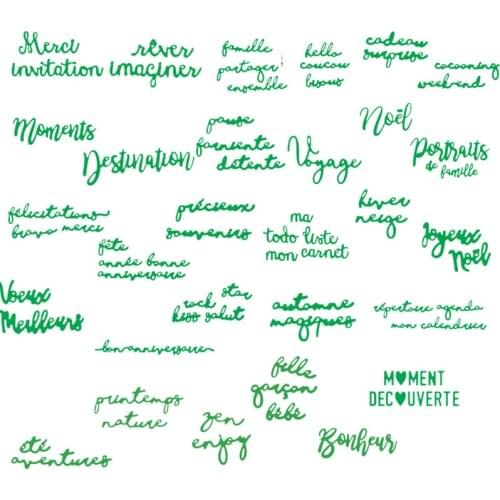 Merci
invitation
rêver
imaginer
famille
partager
ensemble
hello
coucou
bisous
cadeau
surprise
cocooning
weekend
Moments
Destination
pause
farniente
détente
Voyage
Noël
Portraits
de famille
félicitations
bravo merci
fête
année bonne
anniversaire
précieux
souvenirs
ma
todo liste
mon carnet
hiver
neige
Joyeux
Noël
Voeux
Meilleurs
rock star
kiss salut
automne
magiques
répertoire agenda
mon calendrier
bon anniversaire
printemps
nature
fille
garçon
bébé
M♥MENT
DEC♥UVERTE
été
aventures
zen
enjoy
Bonheur